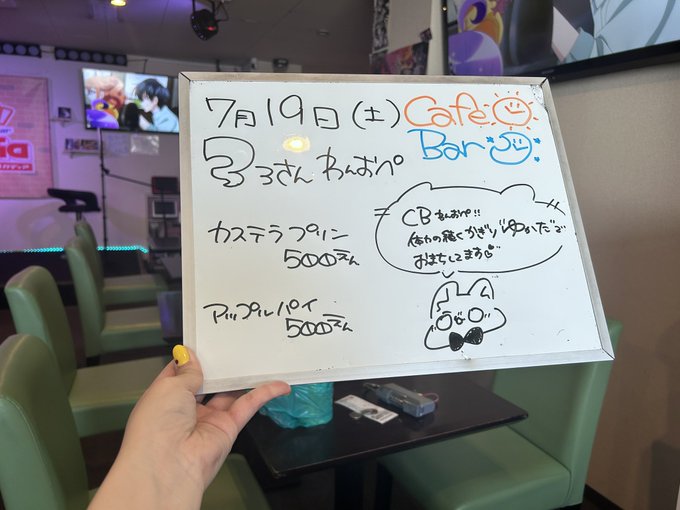 7月19日(土) Cafe
Bar
るろさん わんおぺ
カステラプリン
500えん
アップルパイ
500えん
CBわんおぺ!!
体力の続くかぎり
おまちしてます